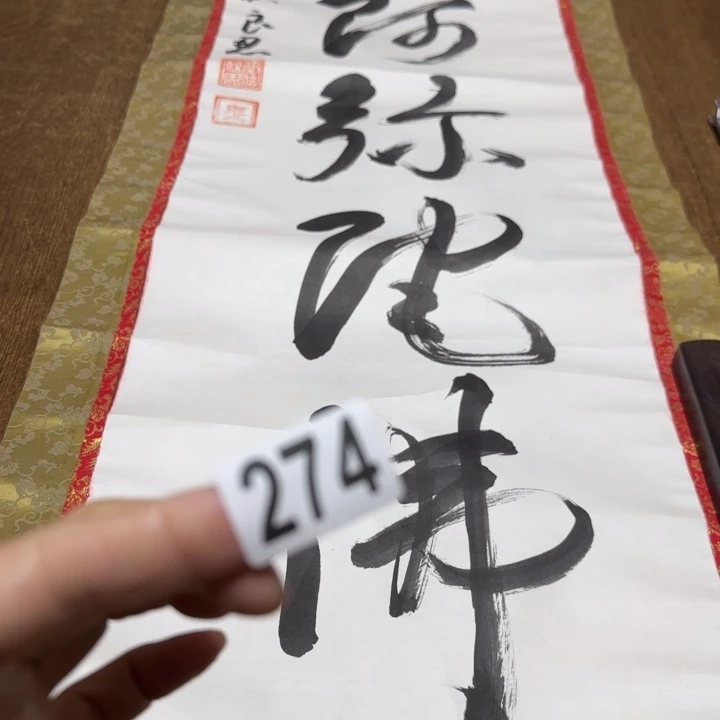 阿
弥
陀
佛
274